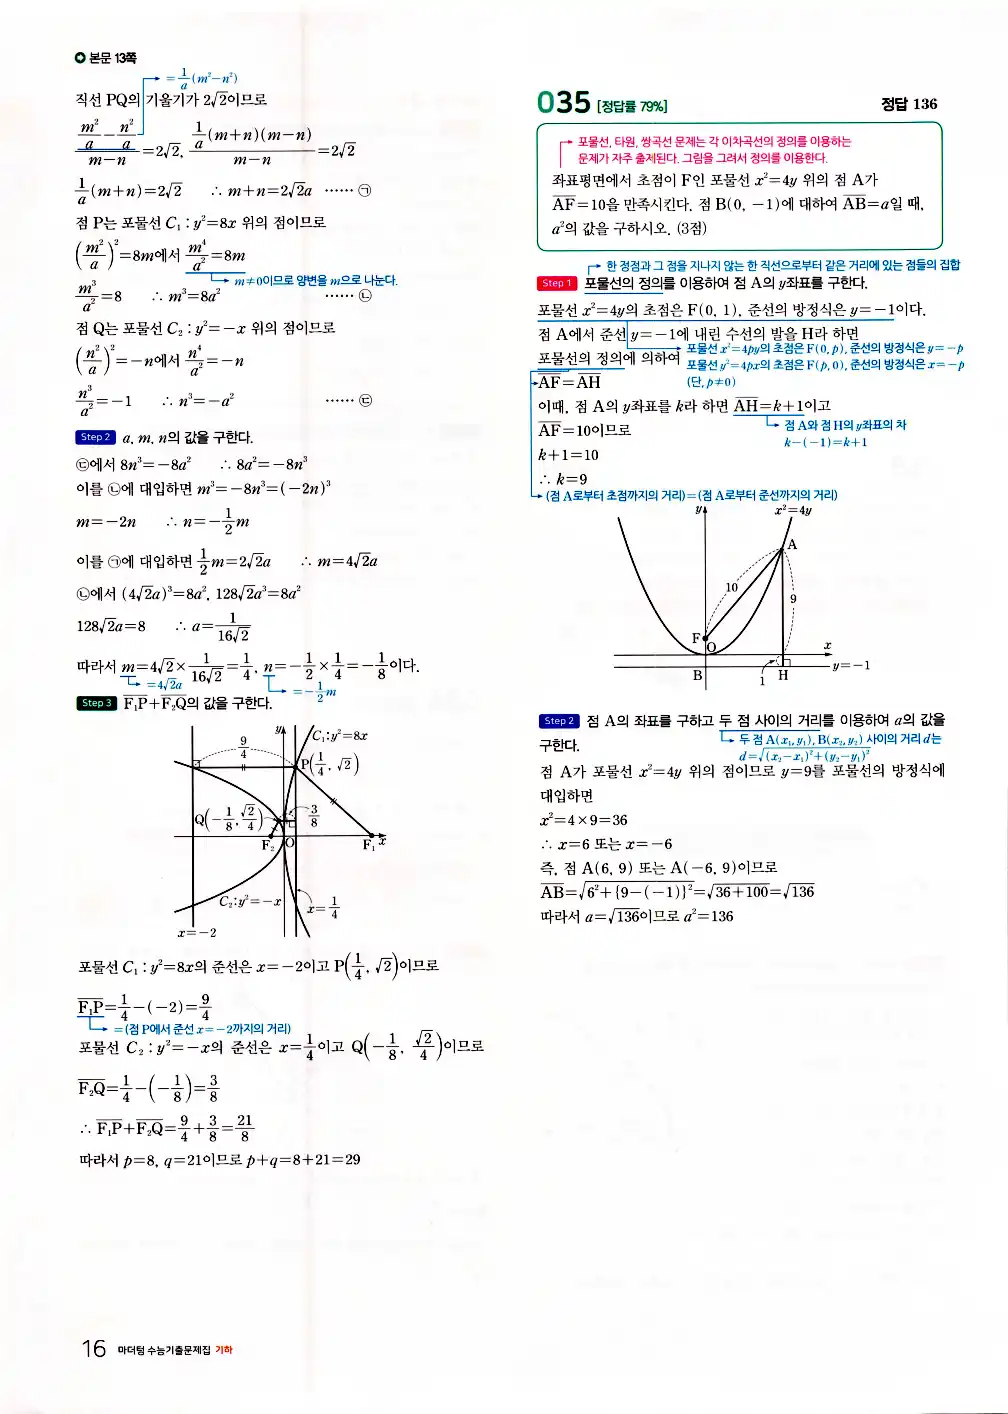 본문 13쪽
= 1/a (m²−n²)
직선 PQ의 기울기가 2√2이므로
(m²/a − n²/a)/(m−n) = 2√2, (1/a (m+n)(m−n))/(m−n) = 2√2
1/a (m+n)=2√2 ∴ m+n=2√2a ······ ㉠
점 P는 포물선 C₁ : y²=8x 위의 점이므로
(m²/a)²=8m에서 m⁴/a²=8m
m≠0이므로 양변을 m으로 나눈다.
m³/a²=8 ∴ m³=8a² ······ ㉡
점 Q는 포물선 C₂ : y²=−x 위의 점이므로
(n²/a)²=−n에서 n⁴/a²=−n
n³/a²=−1 ∴ n³=−a² ······ ㉢
Step 2 a, m, n의 값을 구한다.
㉢에서 8n³=−8a² ∴ 8a²=−8n³
이를 ㉡에 대입하면 m³=−8n³=(−2n)³
m=−2n ∴ n=−1/2 m
이를 ㉠에 대입하면 1/2 m=2√2a ∴ m=4√2a
㉡에서 (4√2a)³=8a², 128√2a³=8a²
128√2a=8 ∴ a=1/(16√2)
따라서 m=4√2×1/(16√2)=1/4, n=−1/2×1/4=−1/8이다.
=4√2a =−1/2 m
Step 3 F₁P+F₂Q의 값을 구한다.
y C₁:y²=8x
9/4
P(1/4, √2)
Q(−1/8, √2/4) 3/8
F₂ O F₁ x
C₂:y²=−x x=1/4
x=−2
포물선 C₁ : y²=8x의 준선은 x=−2이고 P(1/4, √2)이므로
F₁P=1/4−(−2)=9/4
=(점 P에서 준선 x=−2까지의 거리)
포물선 C₂ : y²=−x의 준선은 x=1/4이고 Q(−1/8, √2/4)이므로
F₂Q=1/4−(−1/8)=3/8
∴ F₁P+F₂Q=9/4+3/8=21/8
따라서 p=8, q=21이므로 p+q=8+21=29
16 마더텅 수능기출문제집 기하
035 [정답률 79%] 정답 136
포물선, 타원, 쌍곡선 문제는 각 이차곡선의 정의를 이용하는
문제가 자주 출제된다. 그림을 그려서 정의를 이용한다.
좌표평면에서 초점이 F인 포물선 x²=4y 위의 점 A가
AF=10을 만족시킨다. 점 B(0, −1)에 대하여 AB=a일 때,
a²의 값을 구하시오. (3점)
한 정점과 그 점을 지나지 않는 한 직선으로부터 같은 거리에 있는 점들의 집합
Step 1 포물선의 정의를 이용하여 점 A의 y좌표를 구한다.
포물선 x²=4y의 초점은 F(0, 1), 준선의 방정식은 y=−1이다.
점 A에서 준선 y=−1에 내린 수선의 발을 H라 하면
포물선 x²=4py의 초점은 F(0, p), 준선의 방정식은 y=−p
포물선의 정의에 의하여
포물선 y²=4px의 초점은 F(p, 0), 준선의 방정식은 x=−p
AF=AH (단, p≠0)
이때, 점 A의 y좌표를 k라 하면 AH=k+1이고
AF=10이므로 점 A와 점 H의 y좌표의 차
k−(−1)=k+1
k+1=10
∴ k=9
(점 A로부터 초점까지의 거리)=(점 A로부터 준선까지의 거리)
y x²=4y
A
10
9
F
O x
B 1 H y=−1
Step 2 점 A의 좌표를 구하고 두 점 사이의 거리를 이용하여 a의 값을
구한다.
두 점 A(x₁, y₁), B(x₂, y₂) 사이의 거리 d는
d=√((x₂−x₁)²+(y₂−y₁)²)
점 A가 포물선 x²=4y 위의 점이므로 y=9를 포물선의 방정식에
대입하면
x²=4×9=36
∴ x=6 또는 x=−6
즉, 점 A(6, 9) 또는 A(−6, 9)이므로
AB=√(6²+{9−(−1)}²)=√(36+100)=√136
따라서 a=√136이므로 a²=136